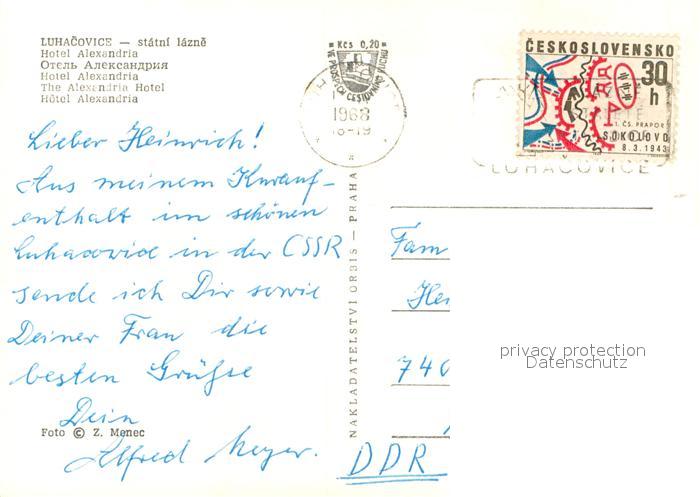 LUHAČOVICE — státní lázně
Hotel Alexandria
Отель Александрия
Hotel Alexandria
The Alexandria Hotel
Hôtel Alexandria
Kčs 0,20
1968
18-19
ČESKOSLOVENSKO
30
h
1. ČS. PRAPOR
SOKOLOVO
8.3.1943
LUHAČOVICE
Lieber Heinrich!
Aus meinem Kurauf-
enthalt im schönen
Luhacovice in der CSSR
sende ich Dir sowie
Deiner Frau die
besten Grüße
Dein
Alfred Meyer.
Foto © Z. Menec
NAKLADATELSTVÍ ORBIS — PRAHA
Fam
Hei
740
DDR
privacy protection
Datenschutz